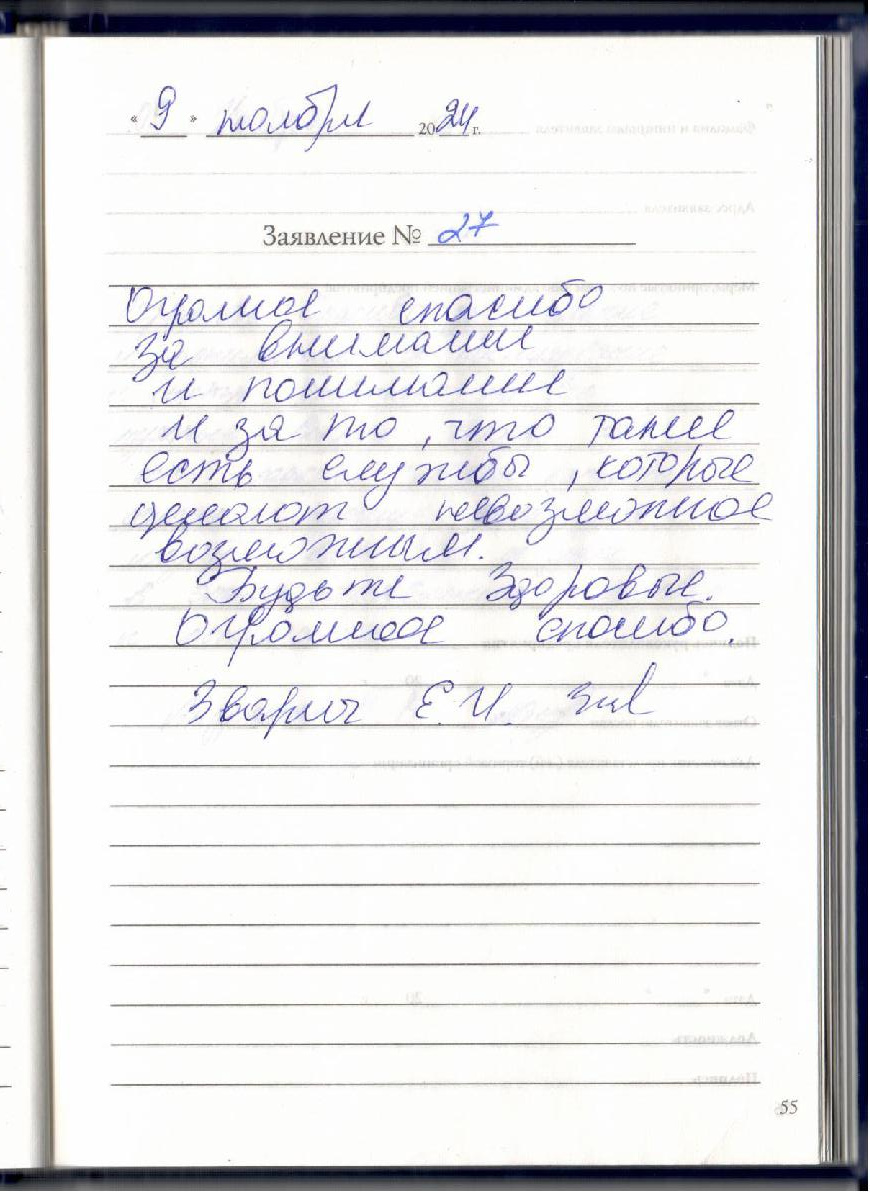 « 9 » ноября 2024 г.
Заявление № 27
Огромное спасибо
за внимание
и понимание
и за то, что такие
есть службы, которые
делают невозможное
возможным.
Будьте Здоровые.
Огромное спасибо.
Зварич Е.И.
55